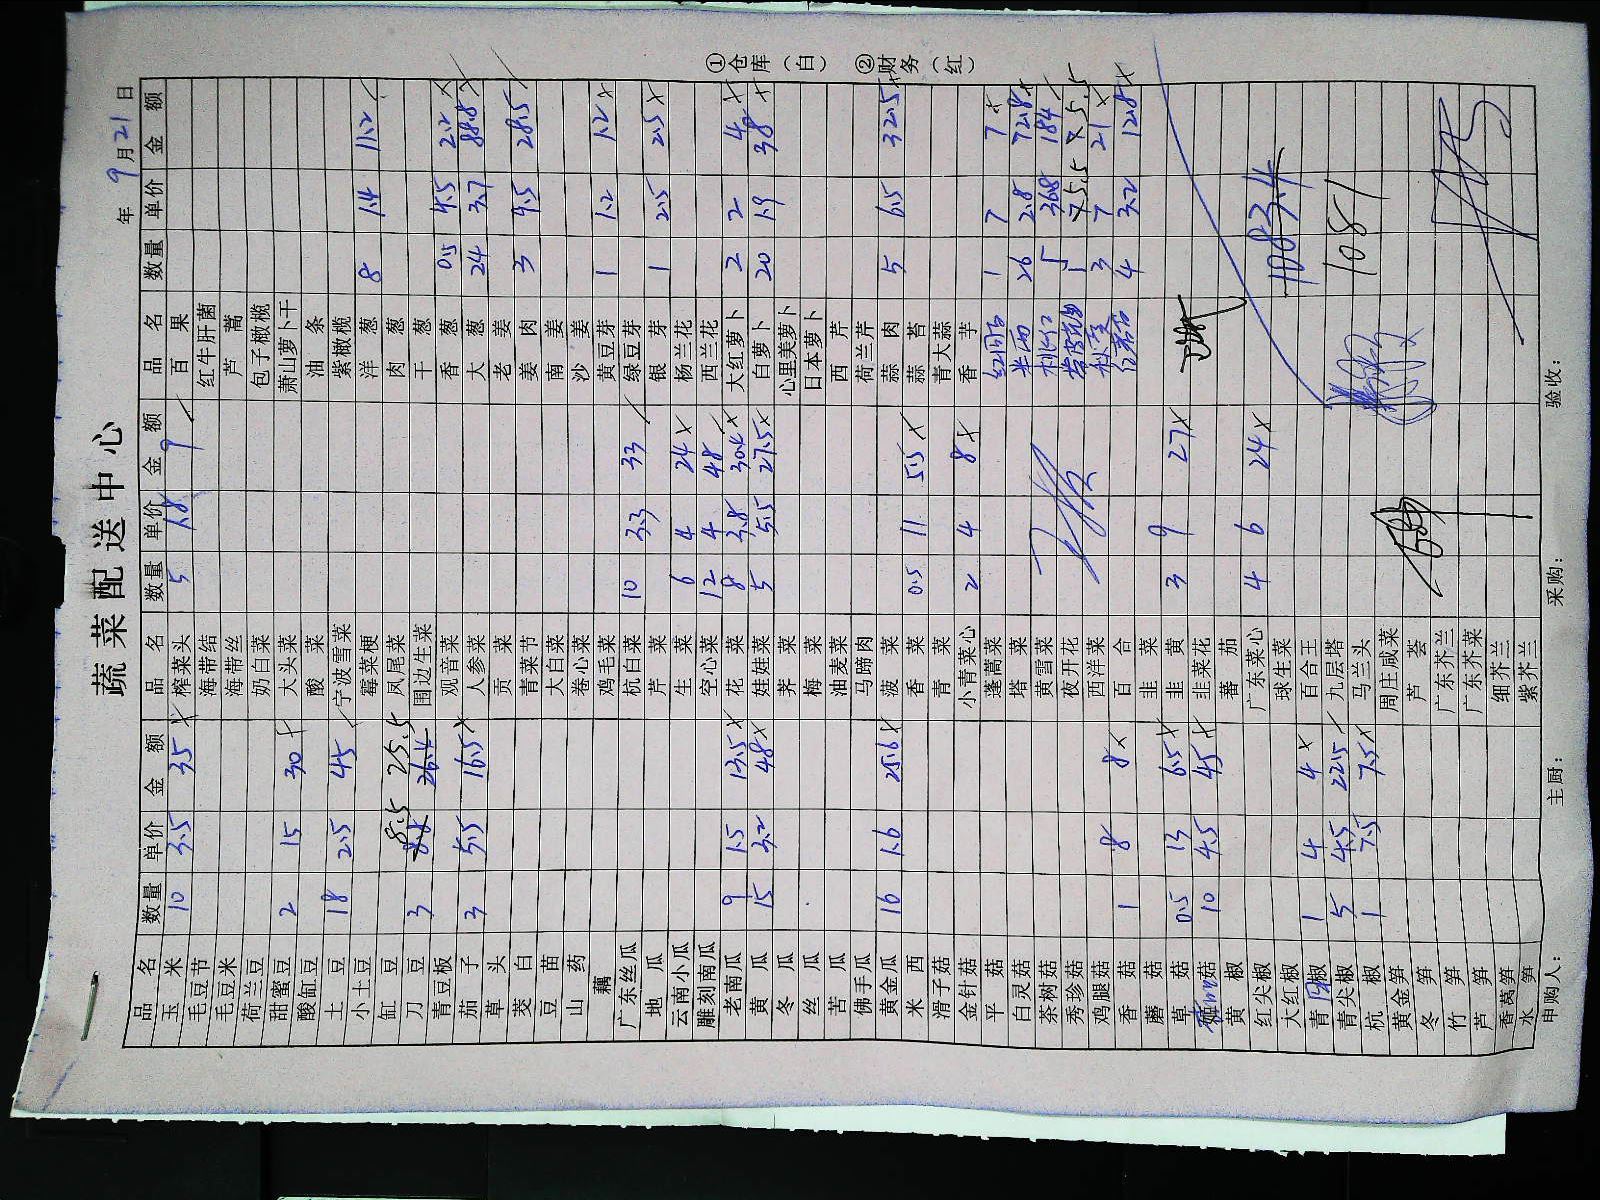 蔬菜配送中心
年 9月21日
品名 数量 单价 金额 品名 数量 单价 金额 品名 数量 单价 金额
玉米 10 3.5 35 榨菜头 5 1.8 9 百果
毛豆节 海带结 红牛肝菌
毛豆米 海带丝 芦蒿
荷兰豆 奶白菜 包子橄榄
甜蜜豆 2 15 30 大头菜 萧山萝卜干
酸缸豆 酸菜 油条
土豆 18 2.5 45 宁波雪菜 紫橄榄
小土豆 霉菜梗 洋葱 8 1.4 11.2
缸豆 凤尾菜 肉葱
刀豆 3 8.8 8.5 26.4 25.5 围边生菜 干葱
青豆板 观音菜 香葱 0.5 4.5 2.2
茄子 3 5.5 16.5 人参菜 大葱 24 3.7 88.8
草头 贡菜 老姜
茭白 青菜节 姜肉 3 9.5 28.5
豆苗 大白菜 南姜
山药 卷心菜 沙姜
藕 鸡毛菜 黄豆芽 1 1.2 1.2
广东丝瓜 杭白菜 10 3.3 33 绿豆芽
地瓜 芹菜 银芽 1 2.5 2.5
云南小瓜 生菜 6 4 24 杨兰花
雕刻南瓜 空心菜 12 4 48 西兰花
老南瓜 9 1.5 13.5 花菜 8 3.8 30.4 大红萝卜 2 2 4
黄瓜 15 3.2 48 娃娃菜 5 5.5 27.5 白萝卜 20 1.9 38
冬瓜 荠菜 心里美萝卜
丝瓜 梅菜 日本萝卜
苦瓜 油麦菜 西芹
佛手瓜 马蹄肉 荷兰芹
黄金瓜 16 1.6 25.6 菠菜 蒜肉 5 6.5 32.5
米西 香菜 0.5 11 5.5 蒜苔
滑子菇 青菜 青大蒜
金针菇 小青菜心 2 4 8 香芋
平菇 蓬蒿菜 1 7 7
白灵菇 塔菜 26 2.8 72.8
茶树菇 黄雪菜 桃仁 5 36.8 184
秀珍菇 夜开花 1 5.5 5.5
鸡腿菇 西洋菜 3 7 21
香菇 1 8 8 百合 4 3.2 12.8
蘑菇 韭菜
草菇 0.5 13 6.5 韭黄 3 9 27
菇 10 4.5 45 韭菜花
黄椒 蕃茄
红尖椒 广东菜心 4 6 24 1083.4
大红椒 球生菜
青圆椒 1 4 4 百合王
青尖椒 5 4.5 22.5 九层塔 1081
杭椒 1 7.5 7.5 马兰头
黄金笋 周庄咸菜
冬笋 芦荟
竹笋 广东芥兰
芦笋 广东芥菜
香莴笋 细芥兰
水笋 紫芥兰
申购人: 主厨: 采购: 验收:
①仓库(白) ②财务(红)